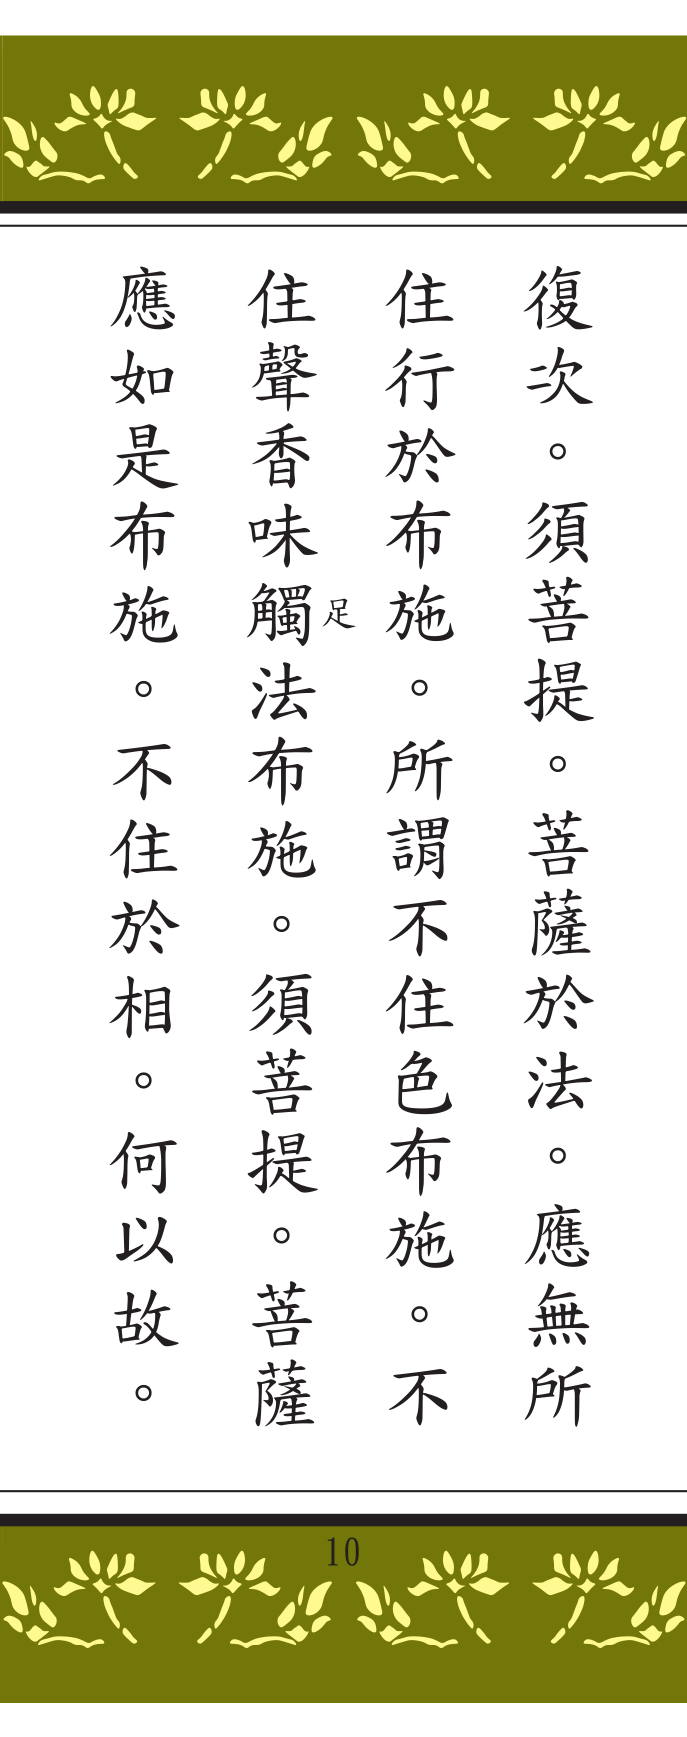 復次。須菩提。菩薩於法。應無所
住行於布施。所謂不住色布施。不
足
住聲香味觸法布施。須菩提。菩薩
應如是布施。不住於相。何以故。
10